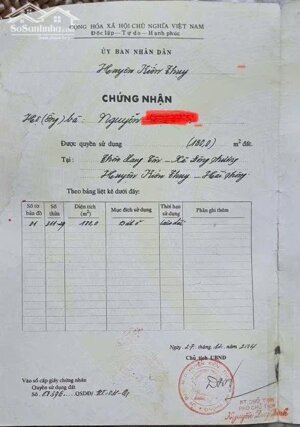 SoSanhnha.com
CỘNG HÒA XÃ HỘI CHỦ NGHĨA VIỆT NAM
Độc lập - Tự do - Hạnh phúc
ỦY BAN NHÂN DÂN
Huyện Kiến Thụy
CHỨNG NHẬN
Hộ (ông) bà: Nguyễn
Được quyền sử dụng (180,0) m² đất.
Tại : Thôn Lạng Côn - Xã Đông Phương
Huyện Kiến Thụy - Hải Phòng
Theo bảng liệt kê dưới đây:
Số tờ bản đồ
Số thửa
Diện tích (m²)
Mục đích sử dụng
Thời hạn sử dụng
Phần ghi thêm
180,0
Đất ở
Lâu dài
Ngày 27 tháng 12 năm 2004
Chủ tịch UBND
Vào sổ cấp giấy chứng nhận
Quyền sử dụng đất
Số QSDĐ/
KT.CHỦ TỊCH
PHÓ CHỦ TỊCH